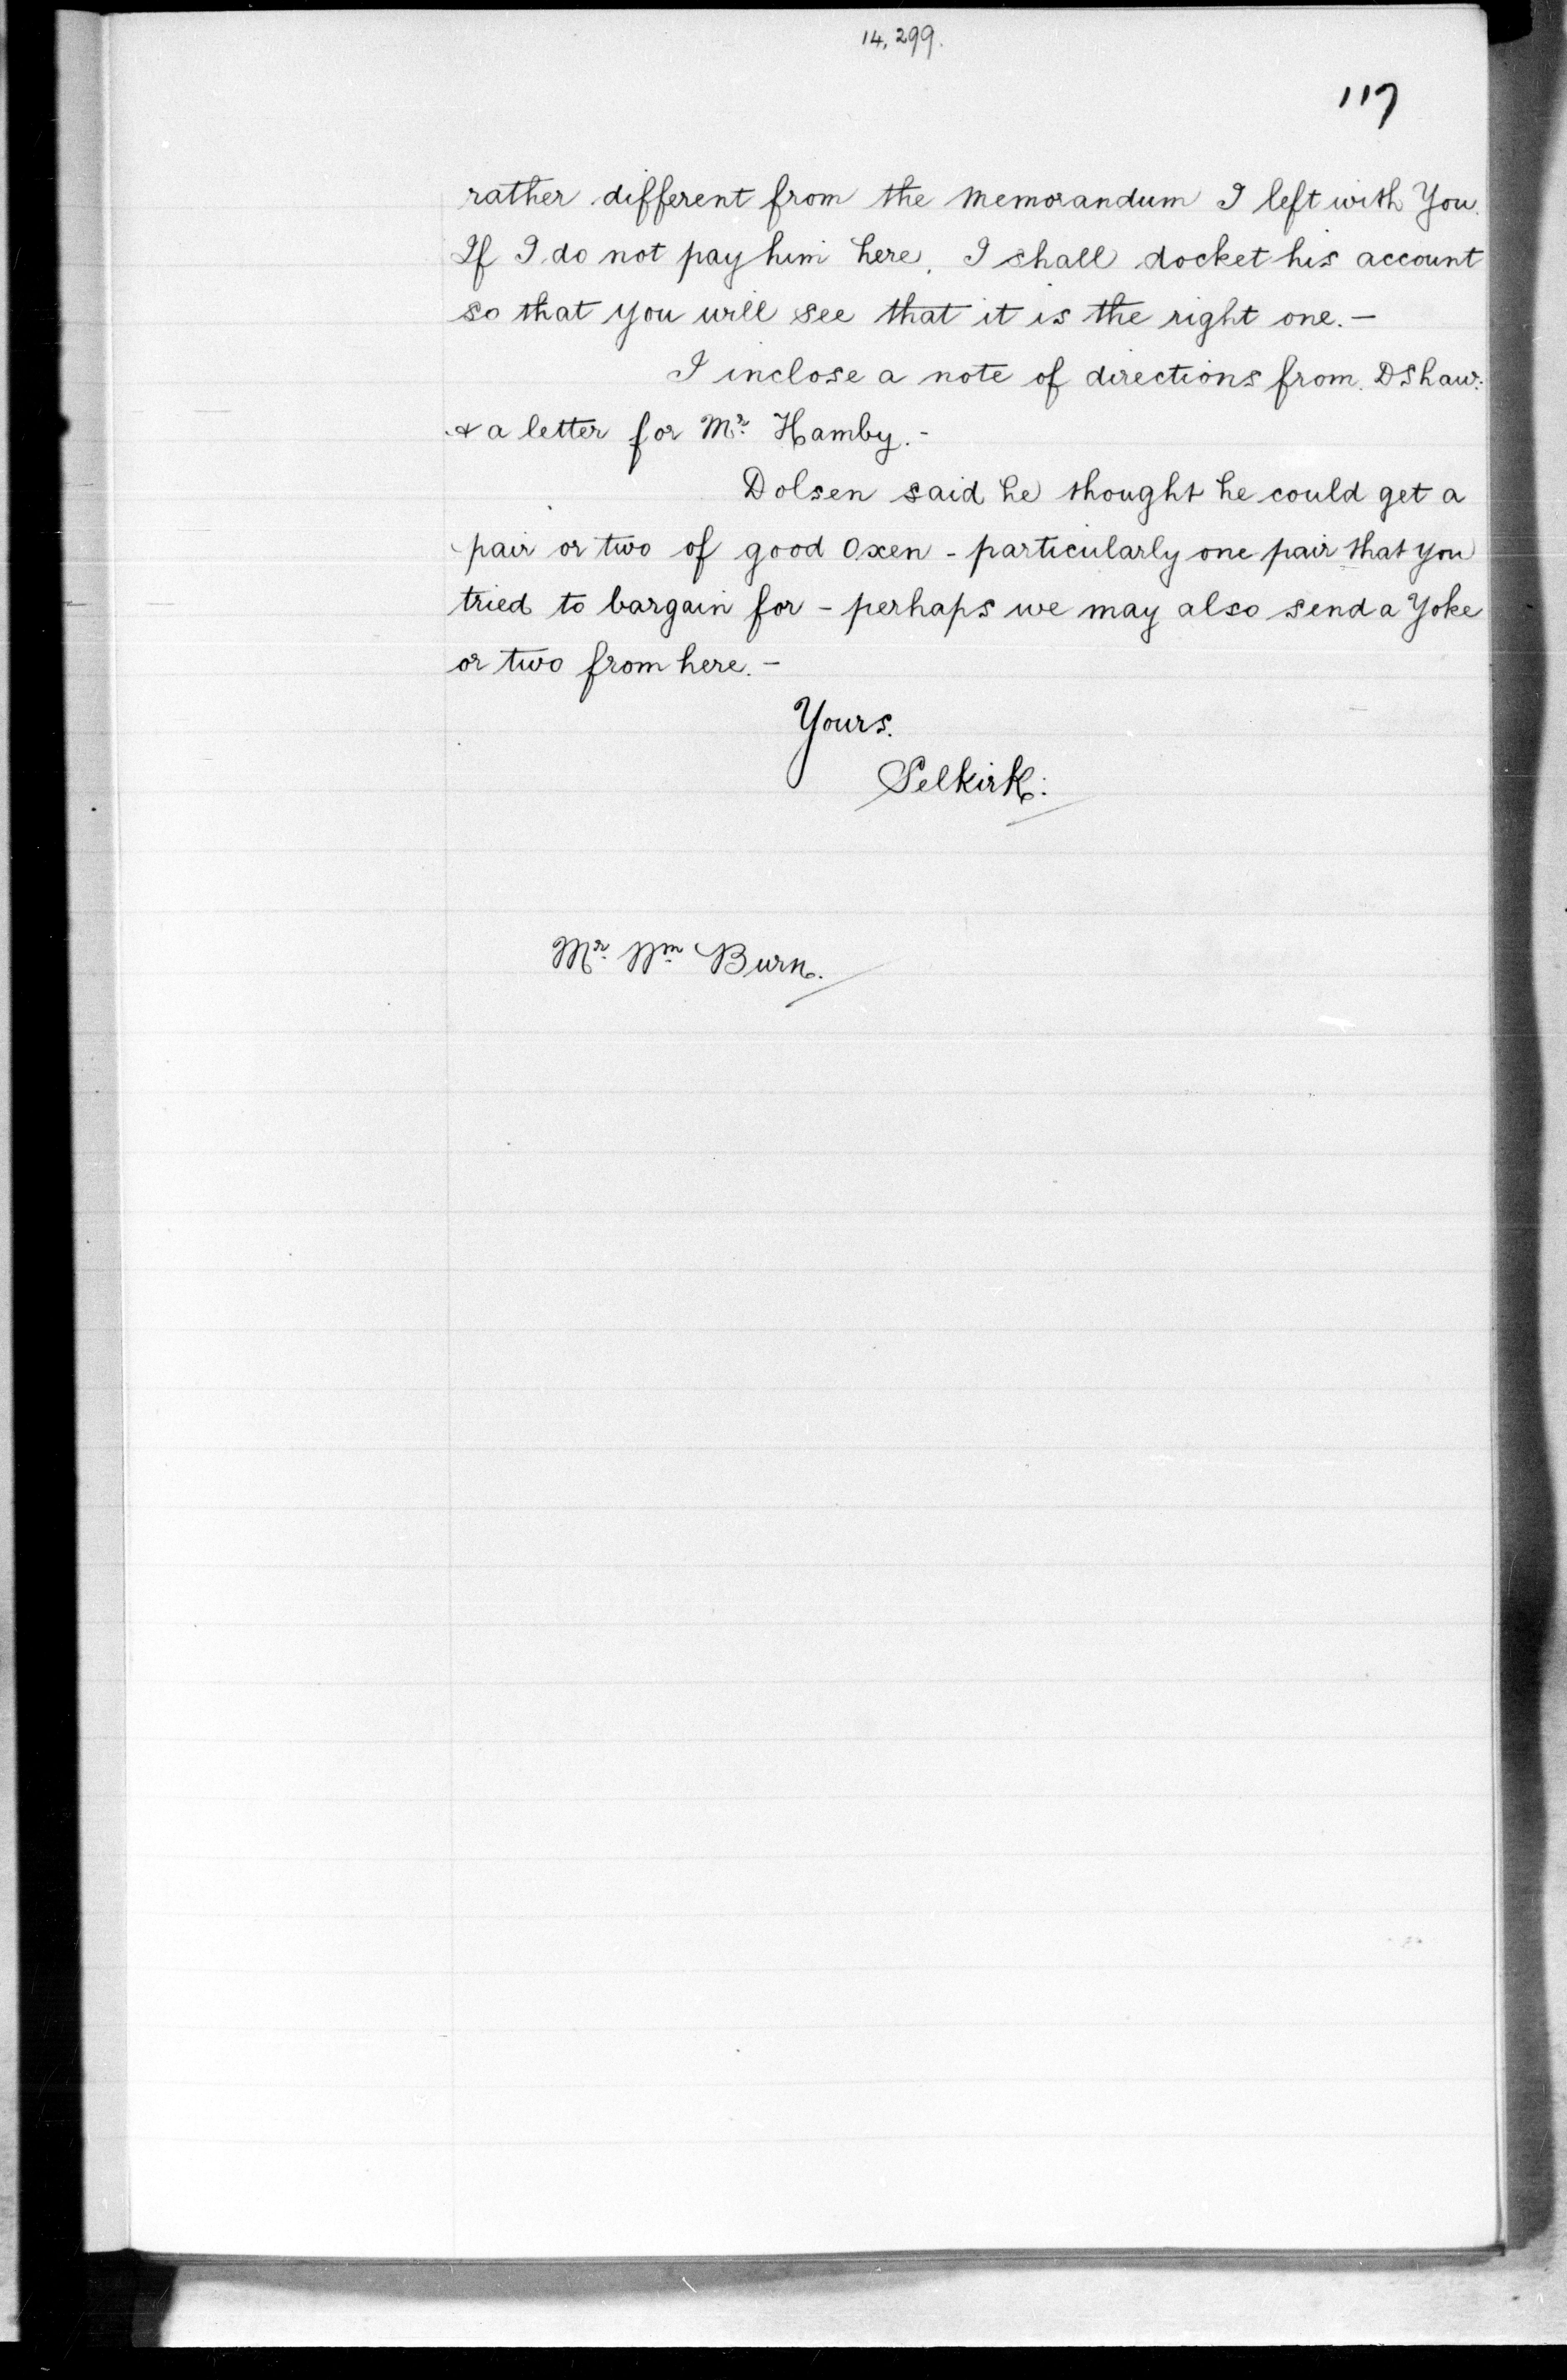 14,299.
117
rather different from the Memorandum I left with You.
If I do not pay him here, I shall docket his account
so that you will see that it is the right one. —
I inclose a note of directions from D Shaw:
& a letter for Mr. Hamby. -
Dolsen said he thought he could get a
pair or two of good Oxen - particularly one pair that you
tried to bargain for - perhaps we may also send a Yoke
or two from here. —
Yours.
Selkirk:
Mr. Wm Burn.